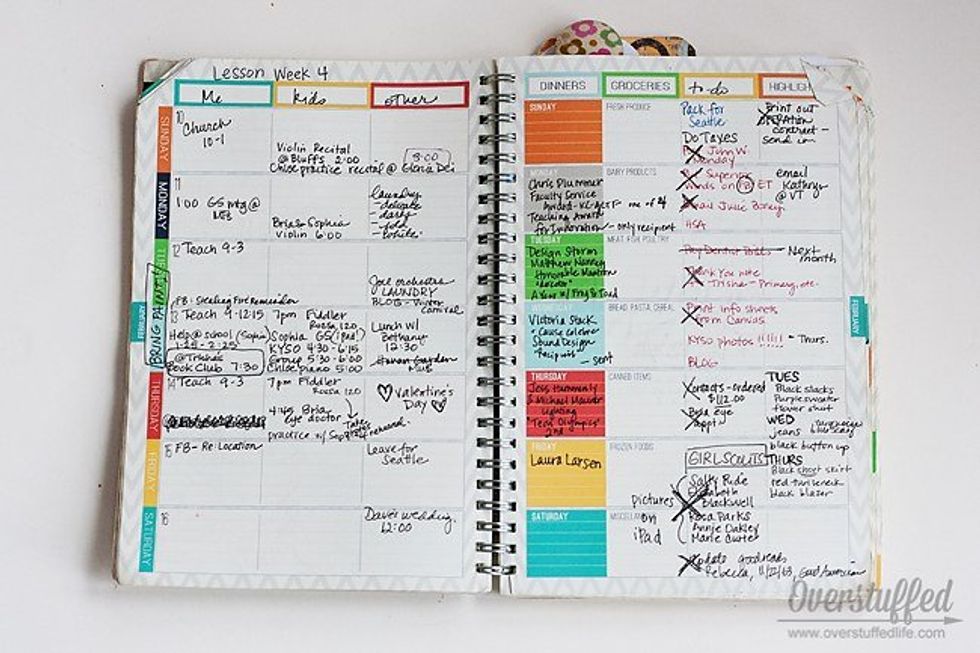 Lesson Week 4
Me
kids
other
SUNDAY
10
Church
10-1
Violin Recital
@ Bluffs 2:00
Chloe practice recital @ Gloria Dei
MONDAY
11
1:00 GS mtg @
Bria & Sophia
Violin 6:00
laundry
- delicate
- darks
- fold
- whites
TUESDAY
12 Teach 9-3
FB: Stealing Fire Reminder
Joel orchestra
LAUNDRY
BLOG -
carnival
BRING
13 Teach 9-12:15
Help @ school (Sophia)
1:25 - 2:25
@ Trisha's
Book Club 7:30
7pm Fiddler
Rossa 120
Sophia GS (iPad)
KYSO 4:30 - 6:15
Group 5:30 - 6:00
Chloe piano 5:00
Lunch w/
Bethany
12:30
THURSDAY
14 Teach 9-3
7pm Fiddler
Rossa 120
4:45 Bria
eye doctor
practice w/
rehearsal
Valentine's
Day
FRIDAY
15 FB - Re: Location
Leave for
Seattle
SATURDAY
16
Dave's wedding
12:00
DINNERS
GROCERIES
to-do
HIGHLIGH
SUNDAY
FRESH PRODUCE
Pack for
Seattle
Do Taxes
John W.
Monday
Print out
OPERATION
contract -
send in
MONDAY
DAIRY PRODUCTS
Chris Plummer
Faculty Service
Award - KC-ACTF - one of 4
Teaching Award
for Innovation - only recipient
Email Julie
email
Kathryn
@ VT
TUESDAY
MEAT, FISH, POULTRY
Design Storm
Matthew
Honorable Mention
A Year w/ Frog & Toad
Pay Dentist
Next
month
Thank you note
- Trisha - Primary, etc.
BREAD, PASTA, CEREAL
Victoria Stack
"Cause Celebre"
Sound Design
Recipients
- sent
Print info sheets
from Canvas
KYSO photos !!!!!! - Thurs.
BLOG
FEBRUARY
THURSDAY
CANNED ITEMS
Jess
& Michael
Lighting
"Teen Olympics"
2nd
Contacts - ordered
$112.00
Bria eye
appt
TUES
Black slacks
Purple sweater
flower shirt
WED
jeans
black button up
THURS
Black short skirt
red turtleneck
black blazer
FRIDAY
FROZEN FOODS
Laura Larsen
GIRL SCOUTS
pictures
on
iPad
Sally Ride
Elizabeth
Blackwell
Rosa Parks
Annie Oakley
Marie Curter
SATURDAY
Update goodreads
Rebecca, 11/22/63,
Overstuffed
www.overstuffedlife.com